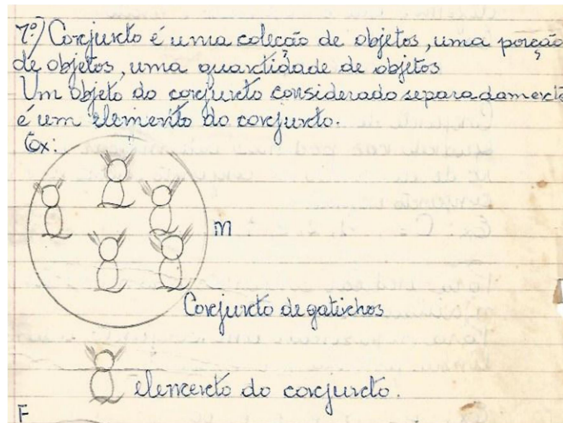 1º) Conjunto é uma coleção de objetos, uma porção
de objetos, uma quantidade de objetos
Um objeto do conjunto considerado separadamente
é um elemento do conjunto.
Ex:
M
Conjunto de gatinhos
elemento do conjunto.
F